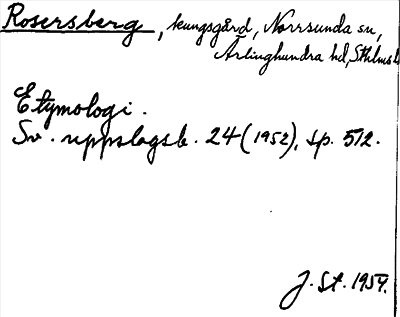 Rosersberg, kungsgård, Norrsunda sn,
Ärlinghundra hd, Sthlms l.
Etymologi.
Sv. uppslagsb. 24 (1952), sp. 512.
J. St. 1954.